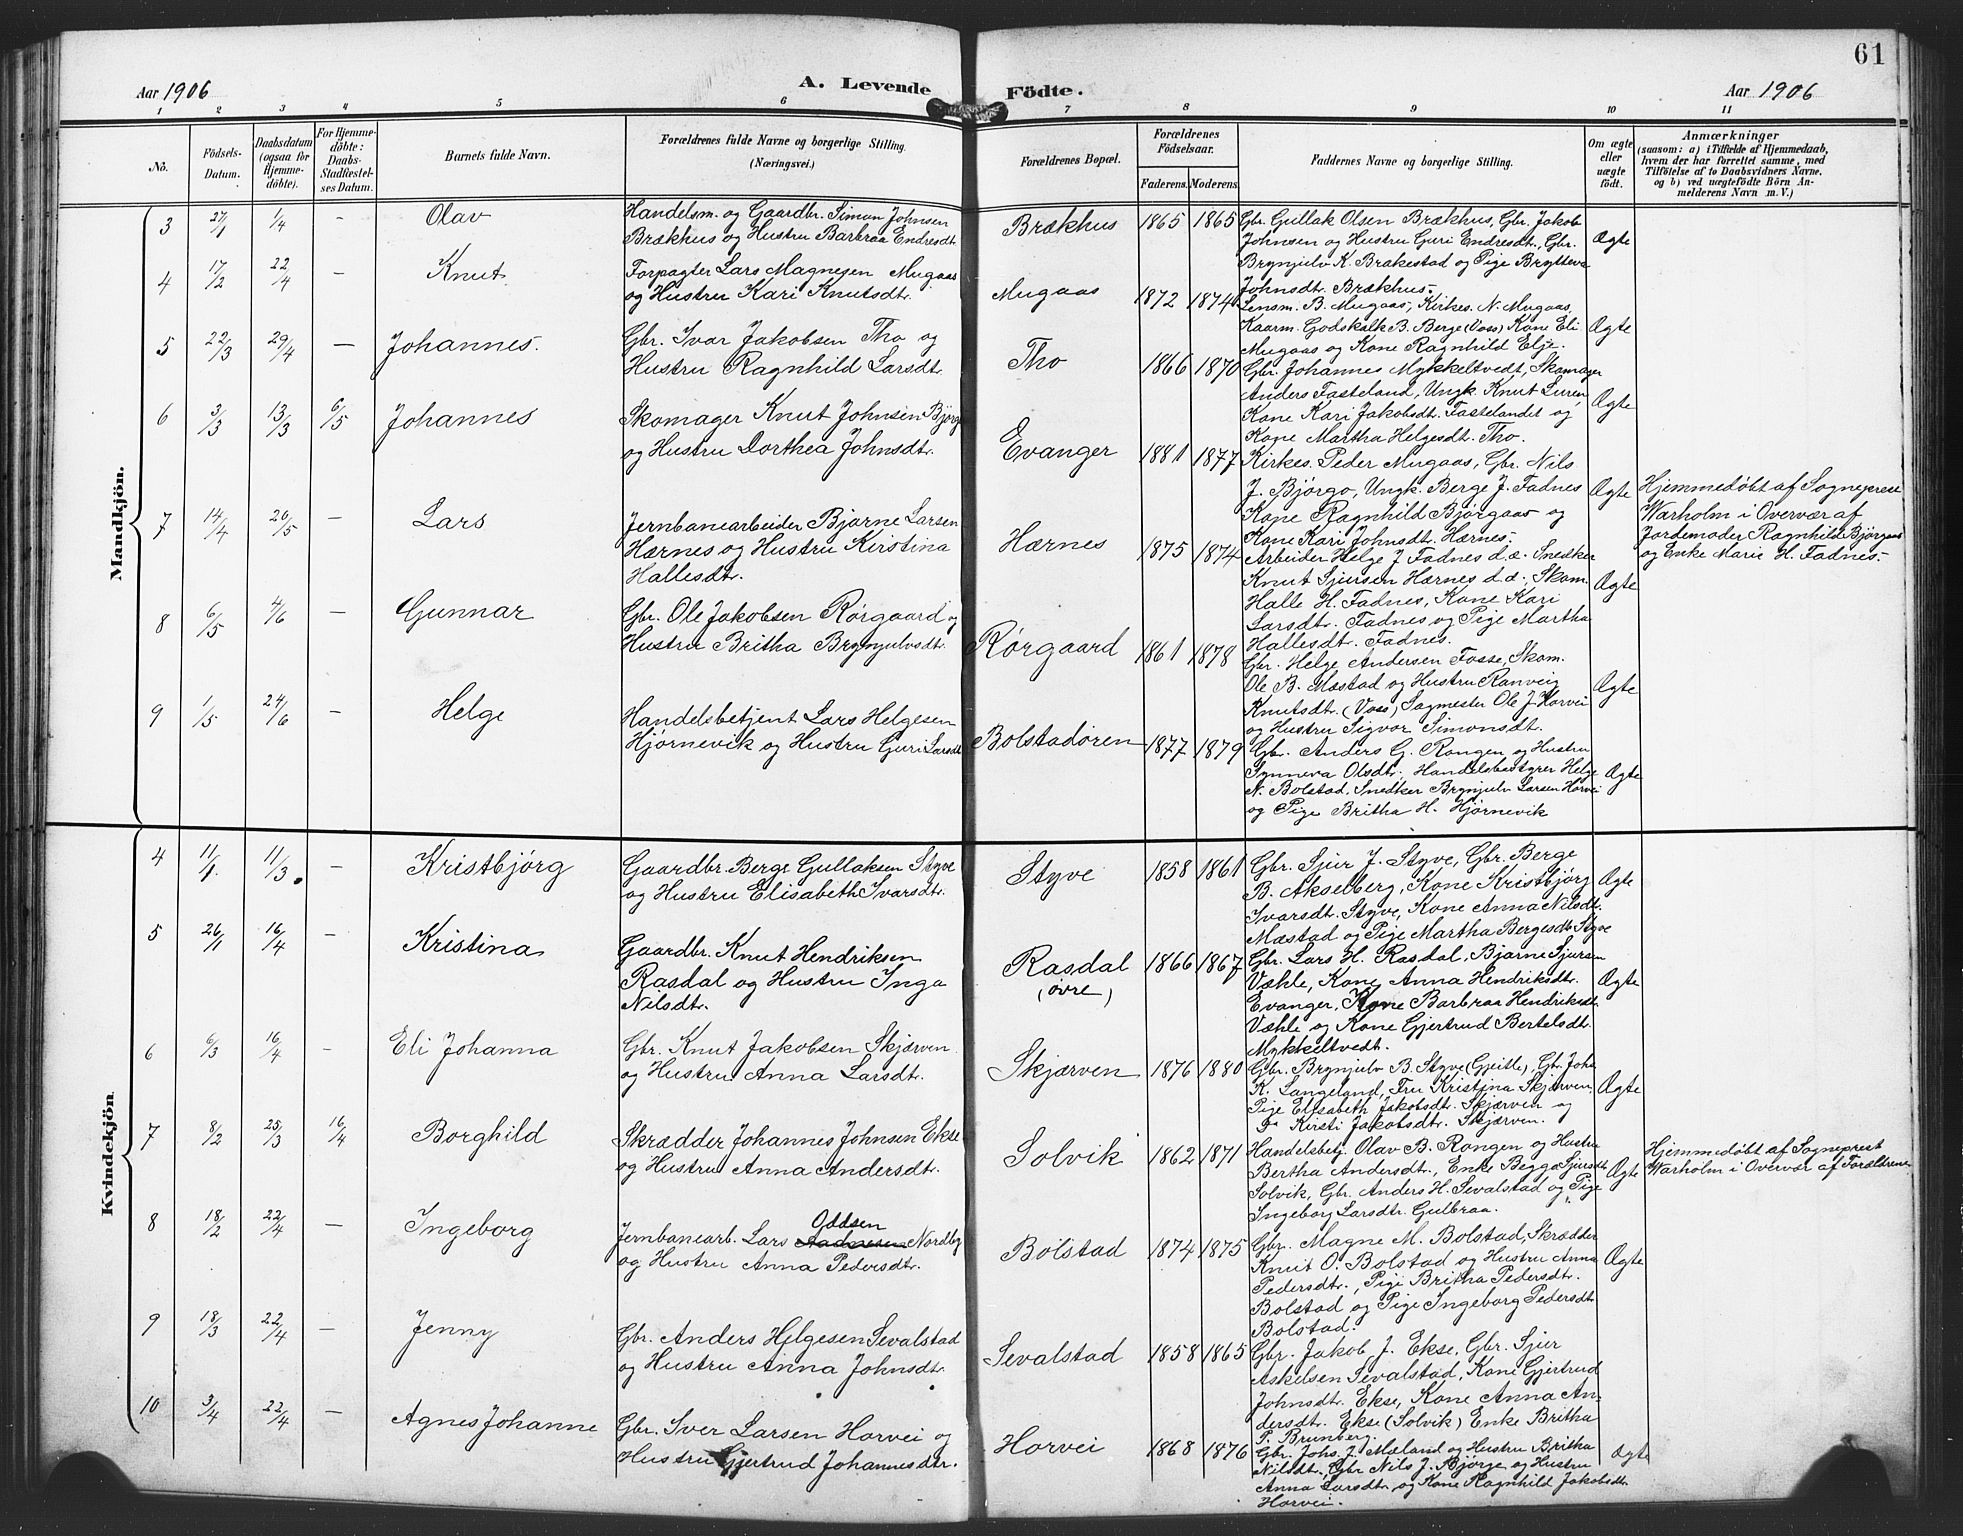 61
Aar 1906
A. Levende Födte.
Aar 1906
1 2 3 4 5 6 7 8 9 10 11
No.
Födsels-Datum.
Daabsdatum (ogsaa for Hjemme-döbte).
For Hjemme-döbte: Daabs-Stadfæstel-ses Datum.
Barnets fulde Navn.
Forældrenes fulde Navne og borgerlige Stilling. (Næringsvei.)
Forældrenes Bopæl.
Forældrenes Födselsaar.
Faderens. Moderens.
Faddernes Navne og borgerlige Stilling.
Om ægte eller uægte födt.
Anmærkninger
(saasom: a) i Tilfælde af Hjemmedaab,
hvem der har forrettet samme, med
Tilföielse af to Daabsvidners Navne,
og b) ved uægtefödte Börn An-
melderens Navn m. V.)
Mandkjön.
3 27/1 1/4 – Olav
Handelsm. og Gaardbr. Simon Johnsen
Brækhus og Hustru Barbraa Endresdt.
Brækhus 1865 1865
Gbr. Gullak Olsen Brækhus, Gbr. Jakob
Johnsen og Hustru Guri Endresdt., Gbr.
Brynjulv K. Brakestad og Pige Brytteva
Johnsdt. Brækhus.
Ægte
4 17/2 22/4 – Knut
Forpagter Lars Magnesen Mugaas
og Hustru Kari Knutsdtr.
Mugaas 1872 1874
Lensm. B. Mugaas, Kirkes. N. Mugaas,
Kaarm. Godskalk B. Berge (Voss) Kone Eli
Mugaas og Kone Ragnhild Elje.
Ægte
5 22/3 29/4 – Johannes.
Gbr. Ivar Jakobsen Tho og
Hustru Ragnhild Larsdt.
Tho 1866 1870
Gbr. Johannes Mykkeltvedt, Skomager
Anders Fasteland, Ungk. Knut Luren
Kone Kari Jakobsdt. Fastelandet og
Kone Martha Helgesdt. Tho.
Ægte
6 3/3 13/3 6/5 Johannes
Skomager Knut Johnsen Bjørgo
og Hustru Dorthea Johnsdtr.
Evanger 1881 1877
Kirkes. Peder Mugaas, Gbr. Nils
J. Bjørgo, Ungk. Berge J. Fadnes
Kone Ragnhild Bjørgaas og
Kone Kari Johnsdt. Hærnes.
Ægte
Hjemmedøbt af Sogneprest
Warholm i Overvær af
Jordemoder Ragnhild Bjørgaas
og Enke Marie H. Fadnes.
7 14/4 20/5 – Lars
Jernbanearbeider Bjarne Larsen
Hærnes og Hustru Kirstina
Hallesdtr.
Hærnes 1875 1874
Arbeider Helge J Fadnes d.æ. Snedker
Knut Sjursen Hærnes d.æ., Skom.
Halle H. Fadnes, Kone Kari
Larsdtr. Fadnes og Pige Martha
Hallesdt. Fadnes.
Ægte
8 6/5 4/6 – Gunnar
Gbr. Ole Jakobsen Rörgaard og
Hustru Britha Brynjulvsdt.
Rörgaard 1861 1878
Gbr. Helge Andersen Fosse, Skom.
Ole B. Mæstad og Hustru Ranveig
Knutsdtr. (Voss) Sagmester Ole J. Horvei
og Hustru Sigvor Simonsdt.
Ægte
9 1/5 24/6 – Helge
Handelsbetjent Lars Helgesen
Hjørnevik og Hustru Guri Larsdt.
Bolstadören 1877 1879
Gbr. Anders G. Rongen og Hustru
Synneva Olsdtr. Handelsbestyrer Helge
N. Bolstad. Snedker Brynjulv Larsen Horvei
og Pige Britha H. Hjørnevik
Ægte
Kvindekjön
4 11/1 11/3. – Kristbjörg
Gaardbr. Berge Gullaksen Styve
og Hustru Elisabeth Ivarsdtr.
Styve 1858 1861
Gbr. Sjur J. Styve, Gbr. Berge
B. Akselberg, Kone Kristbjörg
Ivarsdt. Styve, Kone Anna Nilsdt.
Mæstad og Pige Martha Bergesdt. Styve
Ægte
5 26/1 16/4 – Kristina
Gaardbr. Knut Hendriksen
Rasdal og Hustru Inga
Nilsdt.
Rasdal (övre) 1866 1867
Gbr. Lars H. Rasdal, Bjarne Sjursen
Væhle, Kone Anna Hendriksdtr.
Evanger, Kone Barbraa Hendriksdt.
Væhle og Kone Gjertrud Bertelsdt.
Mykkeltvedt.
Ægte
6 6/3 16/4 – Eli Johanna
Gbr. Knut Jakobsen Skjærven
og Hustru Anna Larsdt.
Skjærven 1876 1880
Gbr. Brynjulv B. Styve (Gjeitle), Gbr Joha
K. Langeland, Fru Kristina Skjærven,
Pige Elisabeth Jakobsdt. Skjærven og
Do Kirsti Jakobsdt. Skjærven.
Ægte
7 8/2 25/3 16/4 Borghild
Skrædder Johannes Johnsen Ekse
og Hustru Anna Andersdt.
Solvik 1862 1871
Handelsbetj. Olav B. Rongen og Hustru
Bertha Andersdt., Enke Begga Sjursdt
Solvik, Gbr. Anders H. Sevalstad og Pige
Ingeborg Larsdtr. Gulbraa.
Ægte
Hjemmedøbt af Sogneprest
Warholm i Overvær af Forældrene
8 18/2 22/4 – Ingeborg
Oddsen
Jernbanearb. Lars Nordby
og Hustru Anna Pedersdtr.
Bolstad 1874 1875
Gbr. Magne M. Bolstad, Skrædder
Knut O. Bolstad og Hustru Anna
Pedersdtr., Pige Britha Pedersdtr.
Bolstad og Pige Ingeborg Pedersdt
Bolstad.
Ægte
9 18/3 22/4 – Jenny
Gbr. Anders Helgesen Sevalstad
og Hustru Anna Johnsdtr.
Sevalstad 1858 1865
Gbr. Jakob J. Ekse, Gbr. Sjur
Askelsen Sevalstad, Kone Gjertrud
Johnsdt. Ekse, Kone Anna An-
dersdt. Ekse (Solvik) Enke Britha
P. Brunberg.
10 3/4 22/4 – Agnes Johanne
Gbr. Iver Larsen Horvei og
Hustru Gjertrud Johannesdtr.
Horvei 1868 1876
Gbr. Johs. J. Mæland og Hustru Britha
Nilsdt., Gbr Nils J. Bjørge og Hustru
Anna Larsdtr. og Kone Ragnhild Jakobsdt.
Horvei.
Ægte